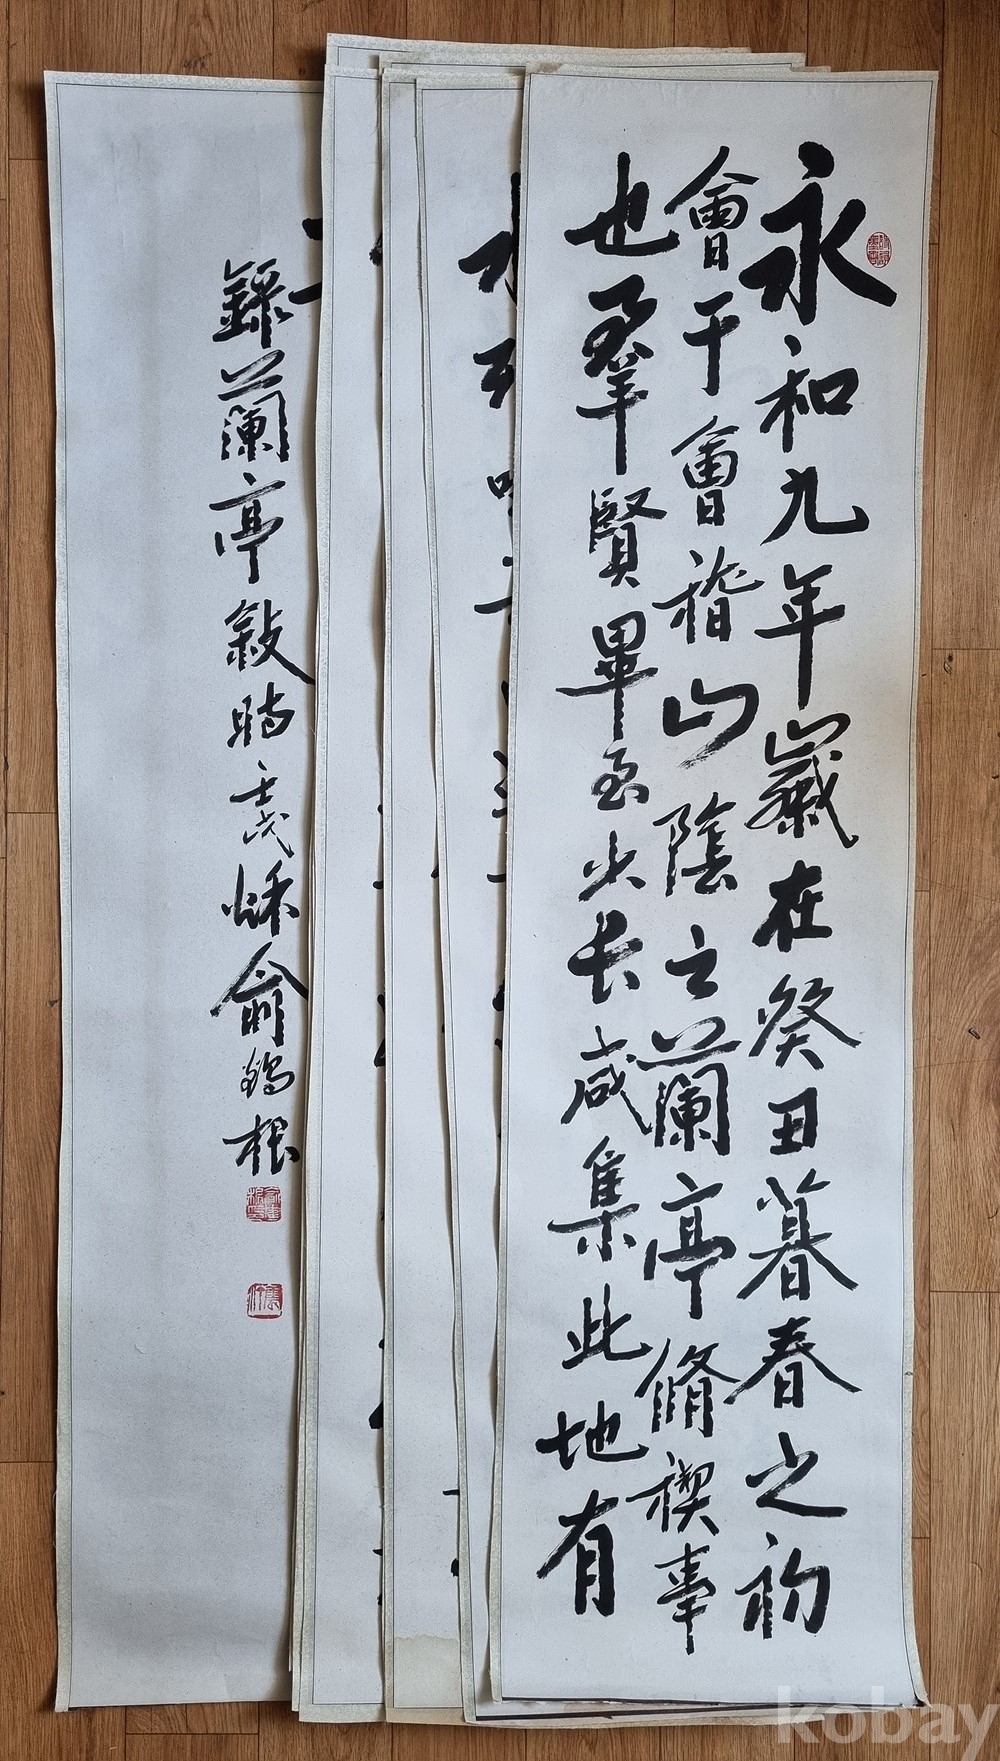 永和九年歲在癸丑暮春之初
會于會稽山陰之蘭亭脩禊事
也羣賢畢至少長咸集此地有
錄蘭亭敘時壬戌秌俞鶴根
kobay